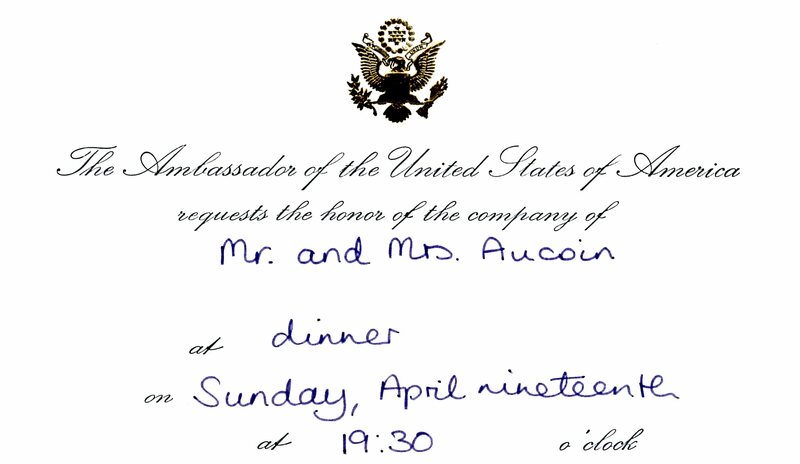 The Ambassador of the United States of America
requests the honor of the company of
Mr. and Mrs. Aucoin
at dinner
on Sunday, April nineteenth
at 19:30 o'clock